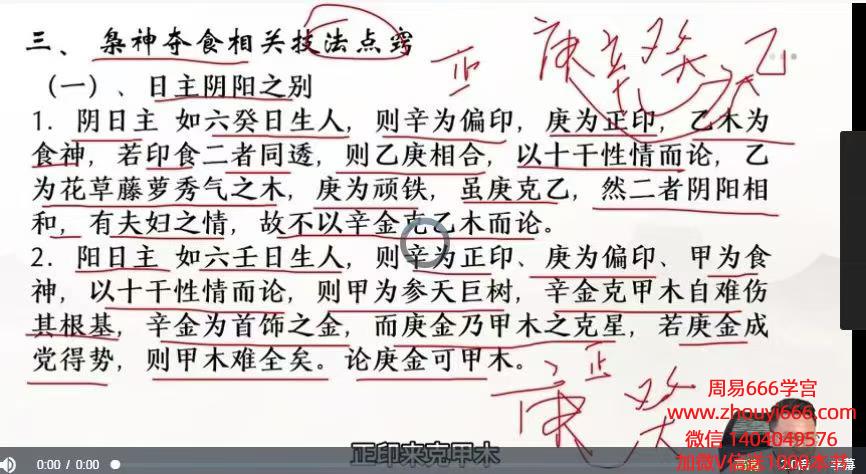 三、枭神夺食相关技法点窍
（一）、日主阴阳之别
1．阴日主 如六癸日生人，则辛为偏印，庚为正印，乙木为
食神，若印食二者同透，则乙庚相合，以十干性情而论，乙
为花草藤萝秀气之木，庚为顽铁，虽庚克乙，然二者阴阳相
和，有夫妇之情，故不以辛金克乙木而论。
2．阳日主 如六壬日生人，则辛为正印、庚为偏印、甲为食
神，以十干性情而论，则甲为参天巨树，辛金克甲木自难伤
其根基，辛金为首饰之金，而庚金乃甲木之克星，若庚金成
党得势，则甲木难全矣。论庚金可甲木。
正
庚 辛 癸 乙
正
庚 癸
周易666学宫
www.zhouyi666.com
微信 1404049576
加微V信送1000本书
正印来克甲木
0:00 / 0:00
高清
字幕